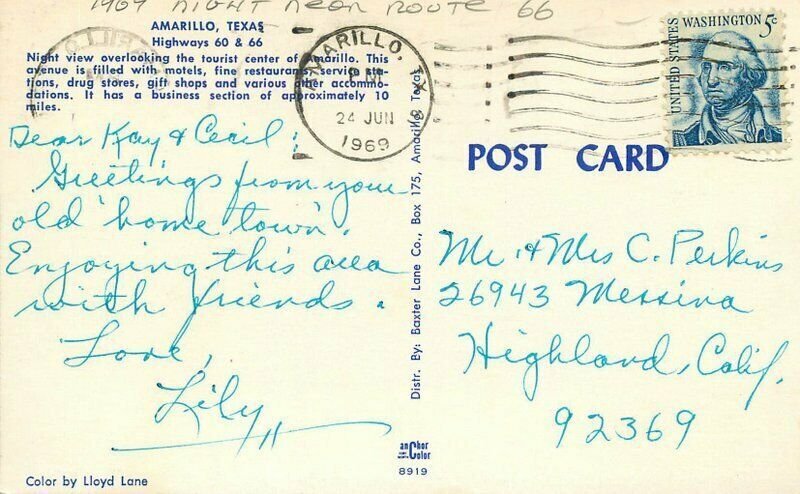 1969 NIGHT NEAR ROUTE 66
AMARILLO, TEXAS
Highways 60 & 66
Night view overlooking the tourist center of Amarillo. This
avenue is filled with motels, fine restaurants, service sta-
tions, drug stores, gift shops and various other accommo-
dations. It has a business section of approximately 10
miles.
Dear Kay & Cecil;
Greetings from your
old 'home town'.
Enjoying this area
with friends.
Love,
Lily
Color by Lloyd Lane
AMARILLO, TX
PM
24 JUN
1969
Distr. By: Baxter Lane Co., Box 175, Amarillo, Texas
anChor
Color
8919
UNITED STATES
WASHINGTON 5c
POST CARD
Mr. & Mrs C. Perkins
26943 Messina
Highland, Calif.
92369